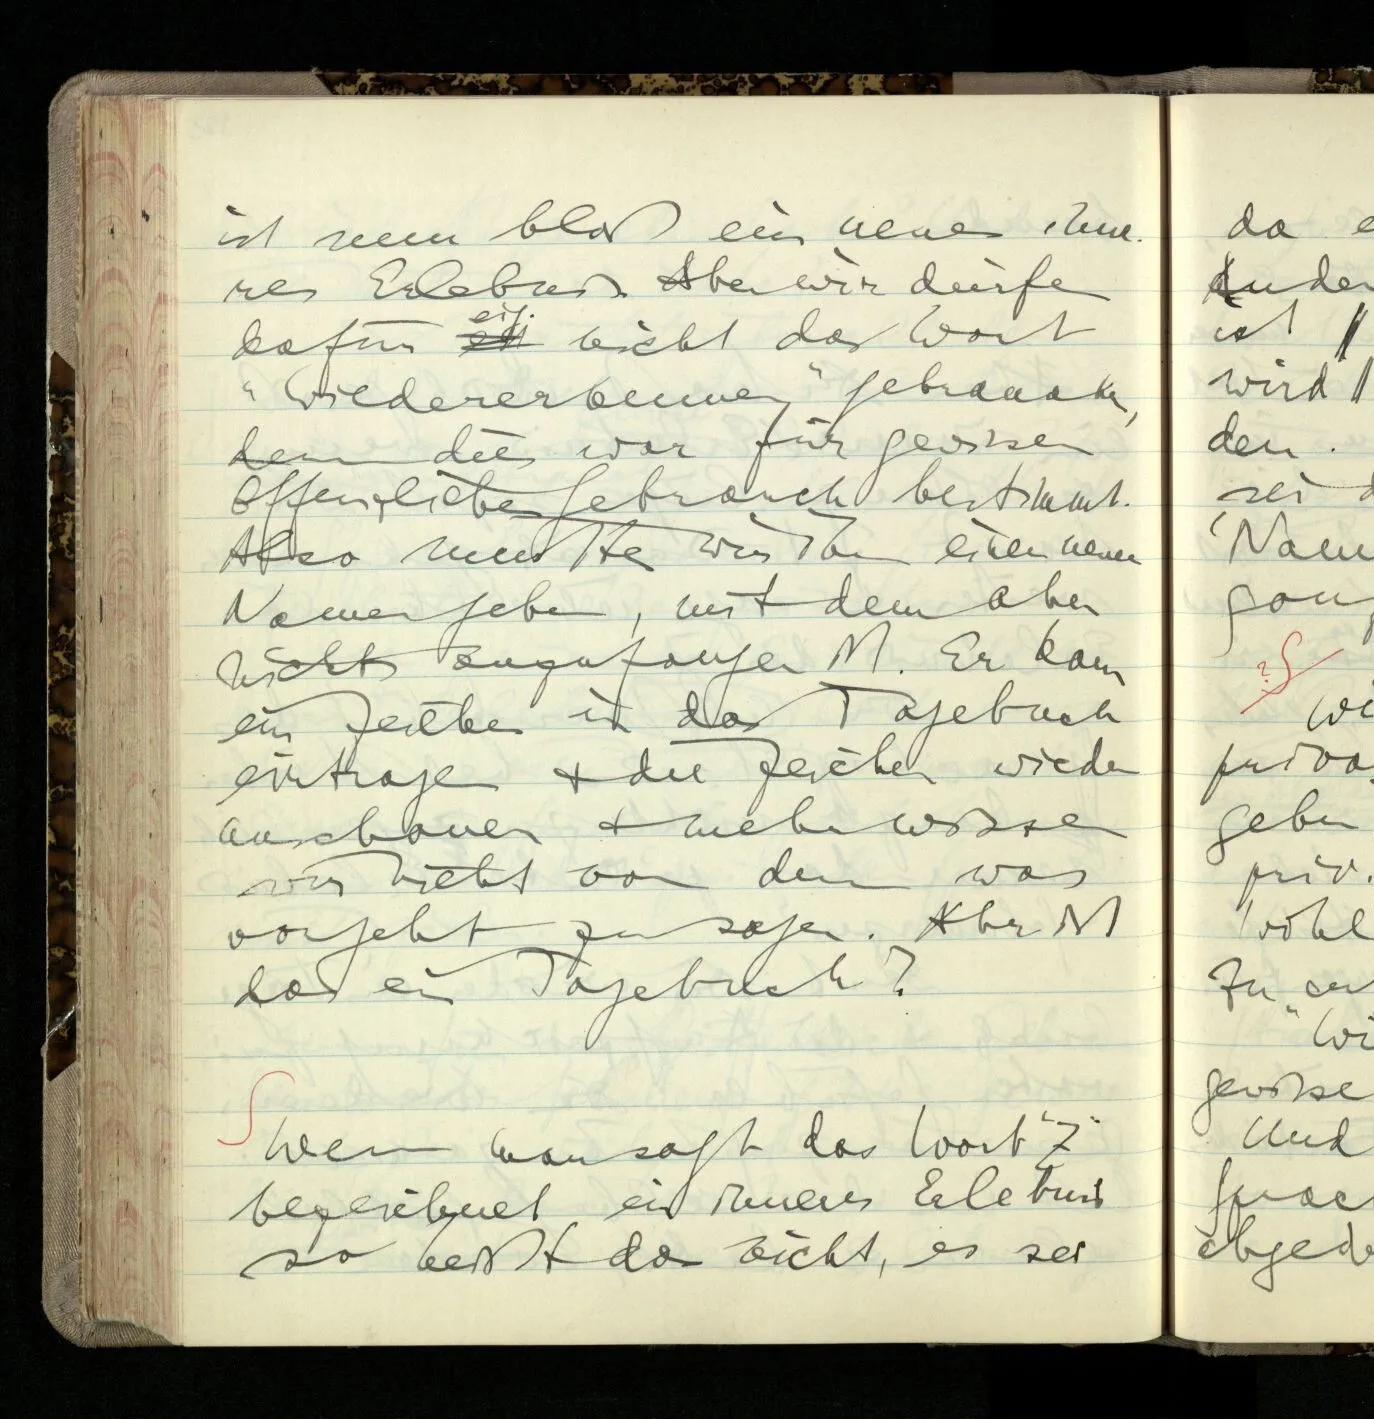 ist nun bloß ein neues inne-
res Erlebnis. Aber wir dürfen
dafür eig. nicht das Wort
"Wiedererkennen" gebrauchen,
denn dies war für gewissen
öffentlichen Gebrauch bestimmt.
Also mußte wir ihm einen neuen
Namen geben, mit dem aber
nichts anzufangen ist. Er kann
ein Zeichen in das Tagebuch
eintragen & die Zeichen wieder
anschauen & mehr wissen
wir nicht von dem was
vorgeht zu sagen. Aber ist
das ein Tagebuch?
∫ Wenn man sagt das Wort "Z"
bezeichnet ein inneres Erlebnis
so heißt das nicht, es sei
da
ist ||
wird ||
den.
sei
?∫
geben
priv.
Wohl
Zu
gewisse
Und